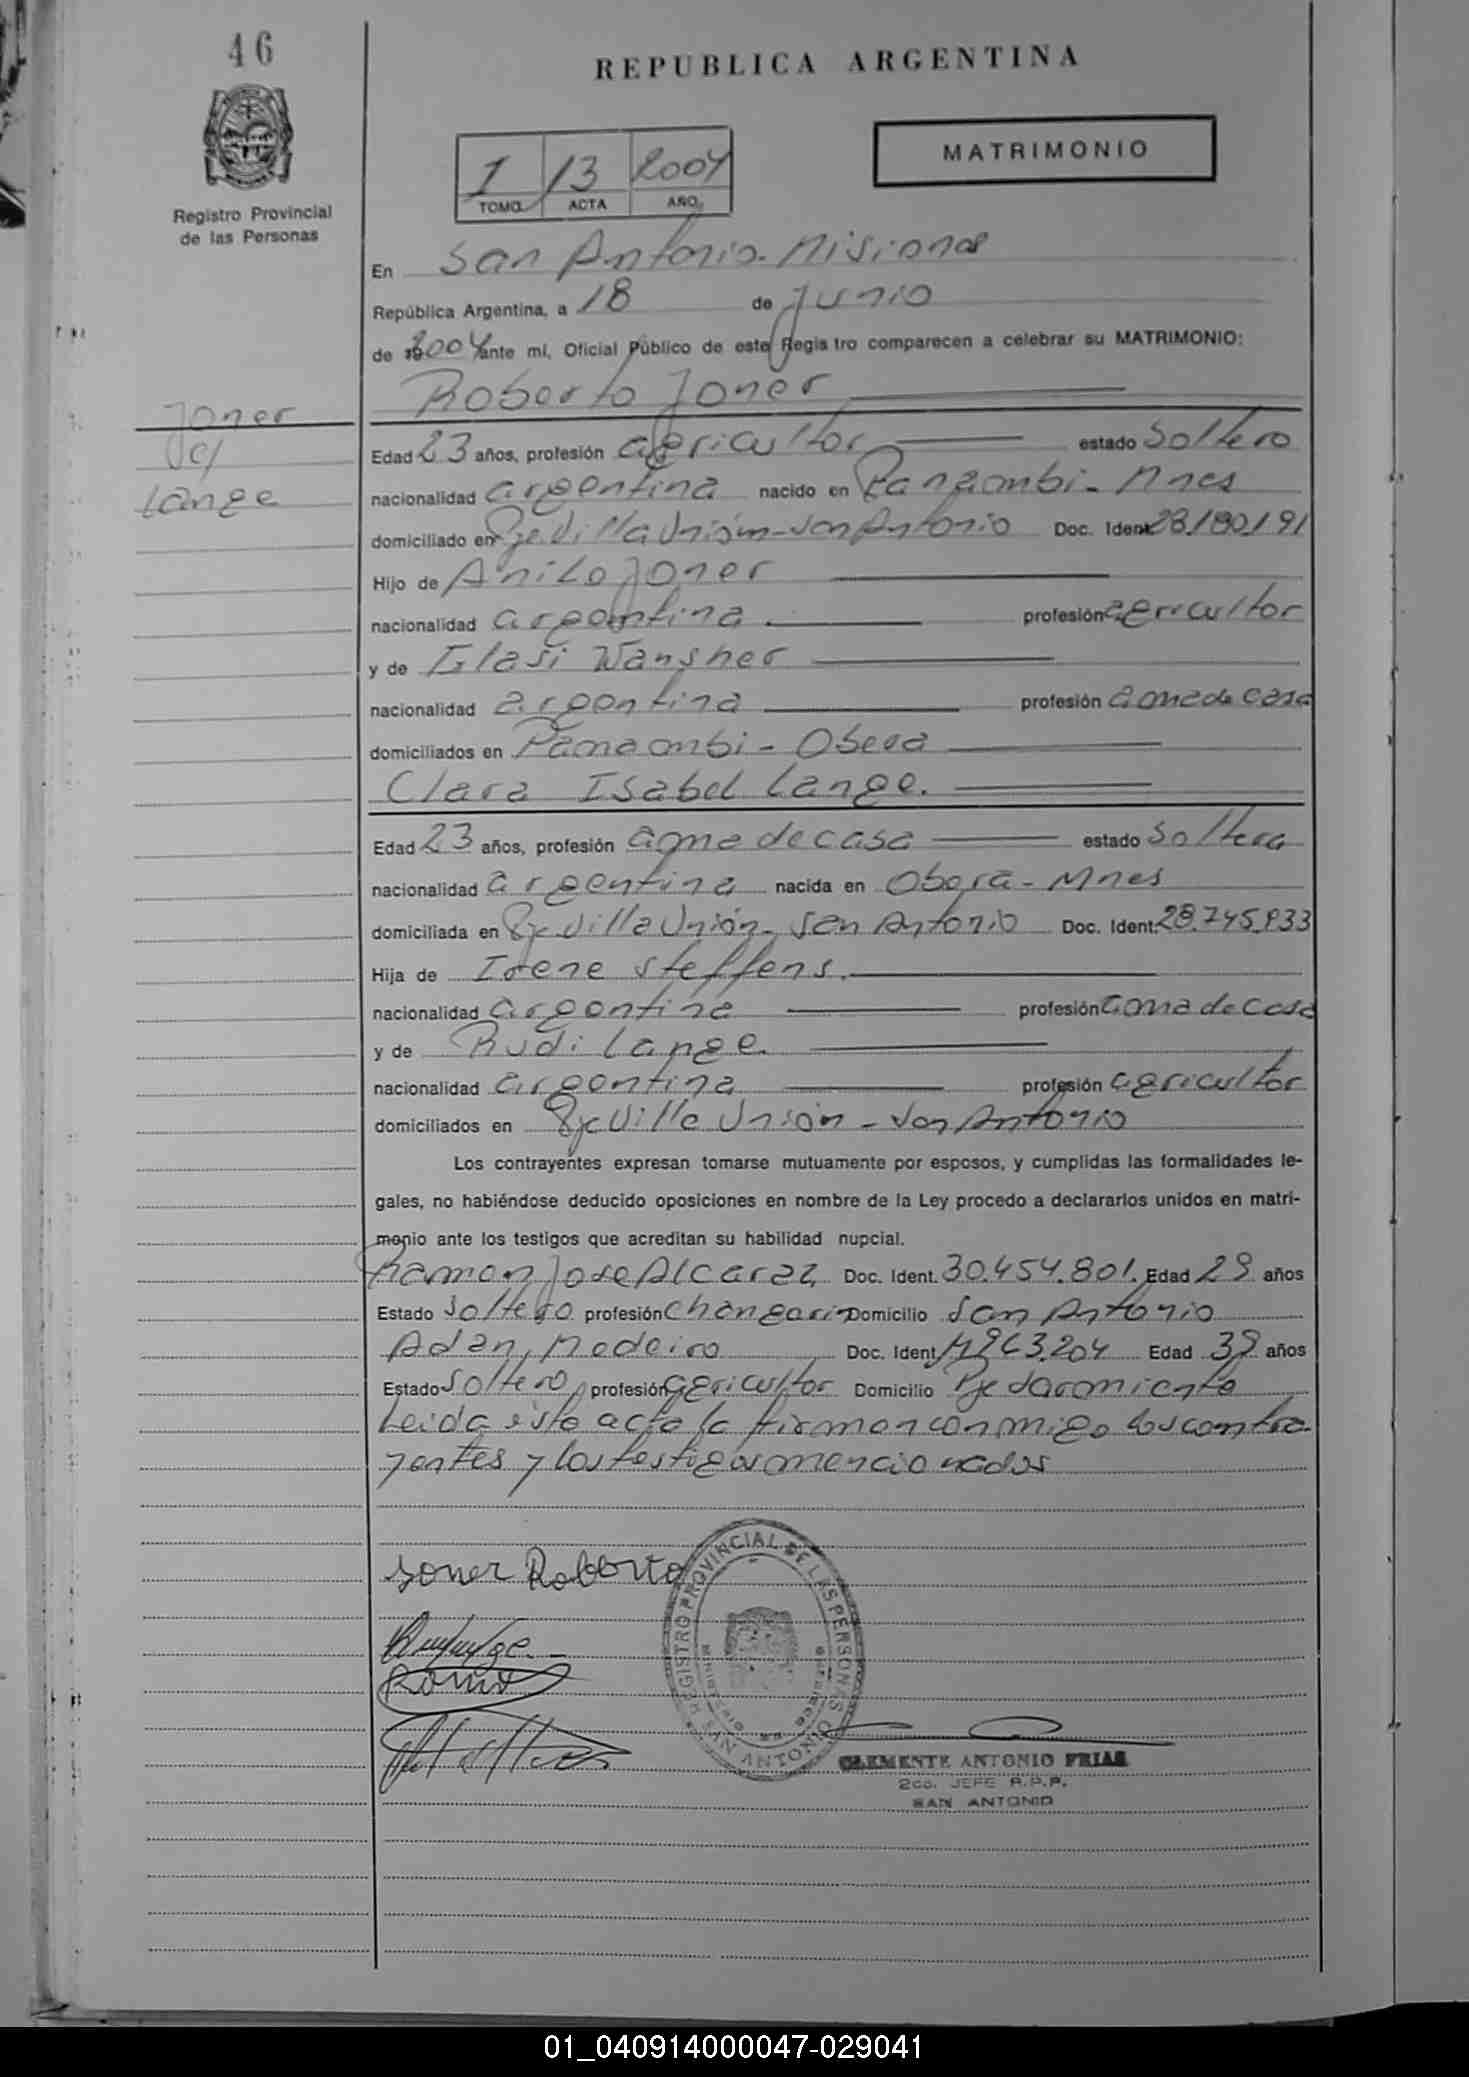 46
REPUBLICA ARGENTINA
MATRIMONIO
1 13 2004
TOMO ACTA AÑO
Registro Provincial
de las Personas
En San Antonio - Misiones
República Argentina, a 18 de Junio
de 2004 ante mí, Oficial Público de este Registro comparecen a celebrar su MATRIMONIO:
Roberto Joner
Joner
c/
Lange
Edad 23 años, profesión agricultor estado Soltero
nacionalidad argentina nacido en Panambi - Mnes
domiciliado en Pje. Villa Unión - San Antonio Doc. Ident. 28.180.191
Hijo de Anilo Joner
nacionalidad argentina profesión agricultor
y de Wansher
nacionalidad argentina profesión ama de casa
domiciliados en Panambi - Obera
Clara Isabel Lange.
Edad 23 años, profesión ama de casa estado Soltera
nacionalidad argentina nacida en Obera - Mnes
domiciliada en Pje. Villa Unión - San Antonio Doc. Ident. 28.745.933
Hija de Irene Steffens.
nacionalidad argentina profesión ama de casa
y de Rudi Lange.
nacionalidad argentina profesión agricultor
domiciliados en Pje Villa Unión - San Antonio
Los contrayentes expresan tomarse mutuamente por esposos, y cumplidas las formalidades le-
gales, no habiéndose deducido oposiciones en nombre de la Ley procedo a declararlos unidos en matri-
monio ante los testigos que acreditan su habilidad nupcial.
Ramon Jose Alcaraz Doc. Ident. 30.454.801. Edad 29 años
Estado Soltero profesión Domicilio San Antonio
Adan, Medeiro Doc. Ident. Edad 39 años
Estado Soltero profesión agricultor Domicilio Pje
Leida este acta la firman conmigo los contra-
yentes y los testigos mencionados
Joner Roberto
REGISTRO PROVINCIAL DE LAS PERSONAS
SAN ANTONIO
CLEMENTE ANTONIO FRIAS
2do. JEFE R.P.P.
SAN ANTONIO
01_040914000047-029041